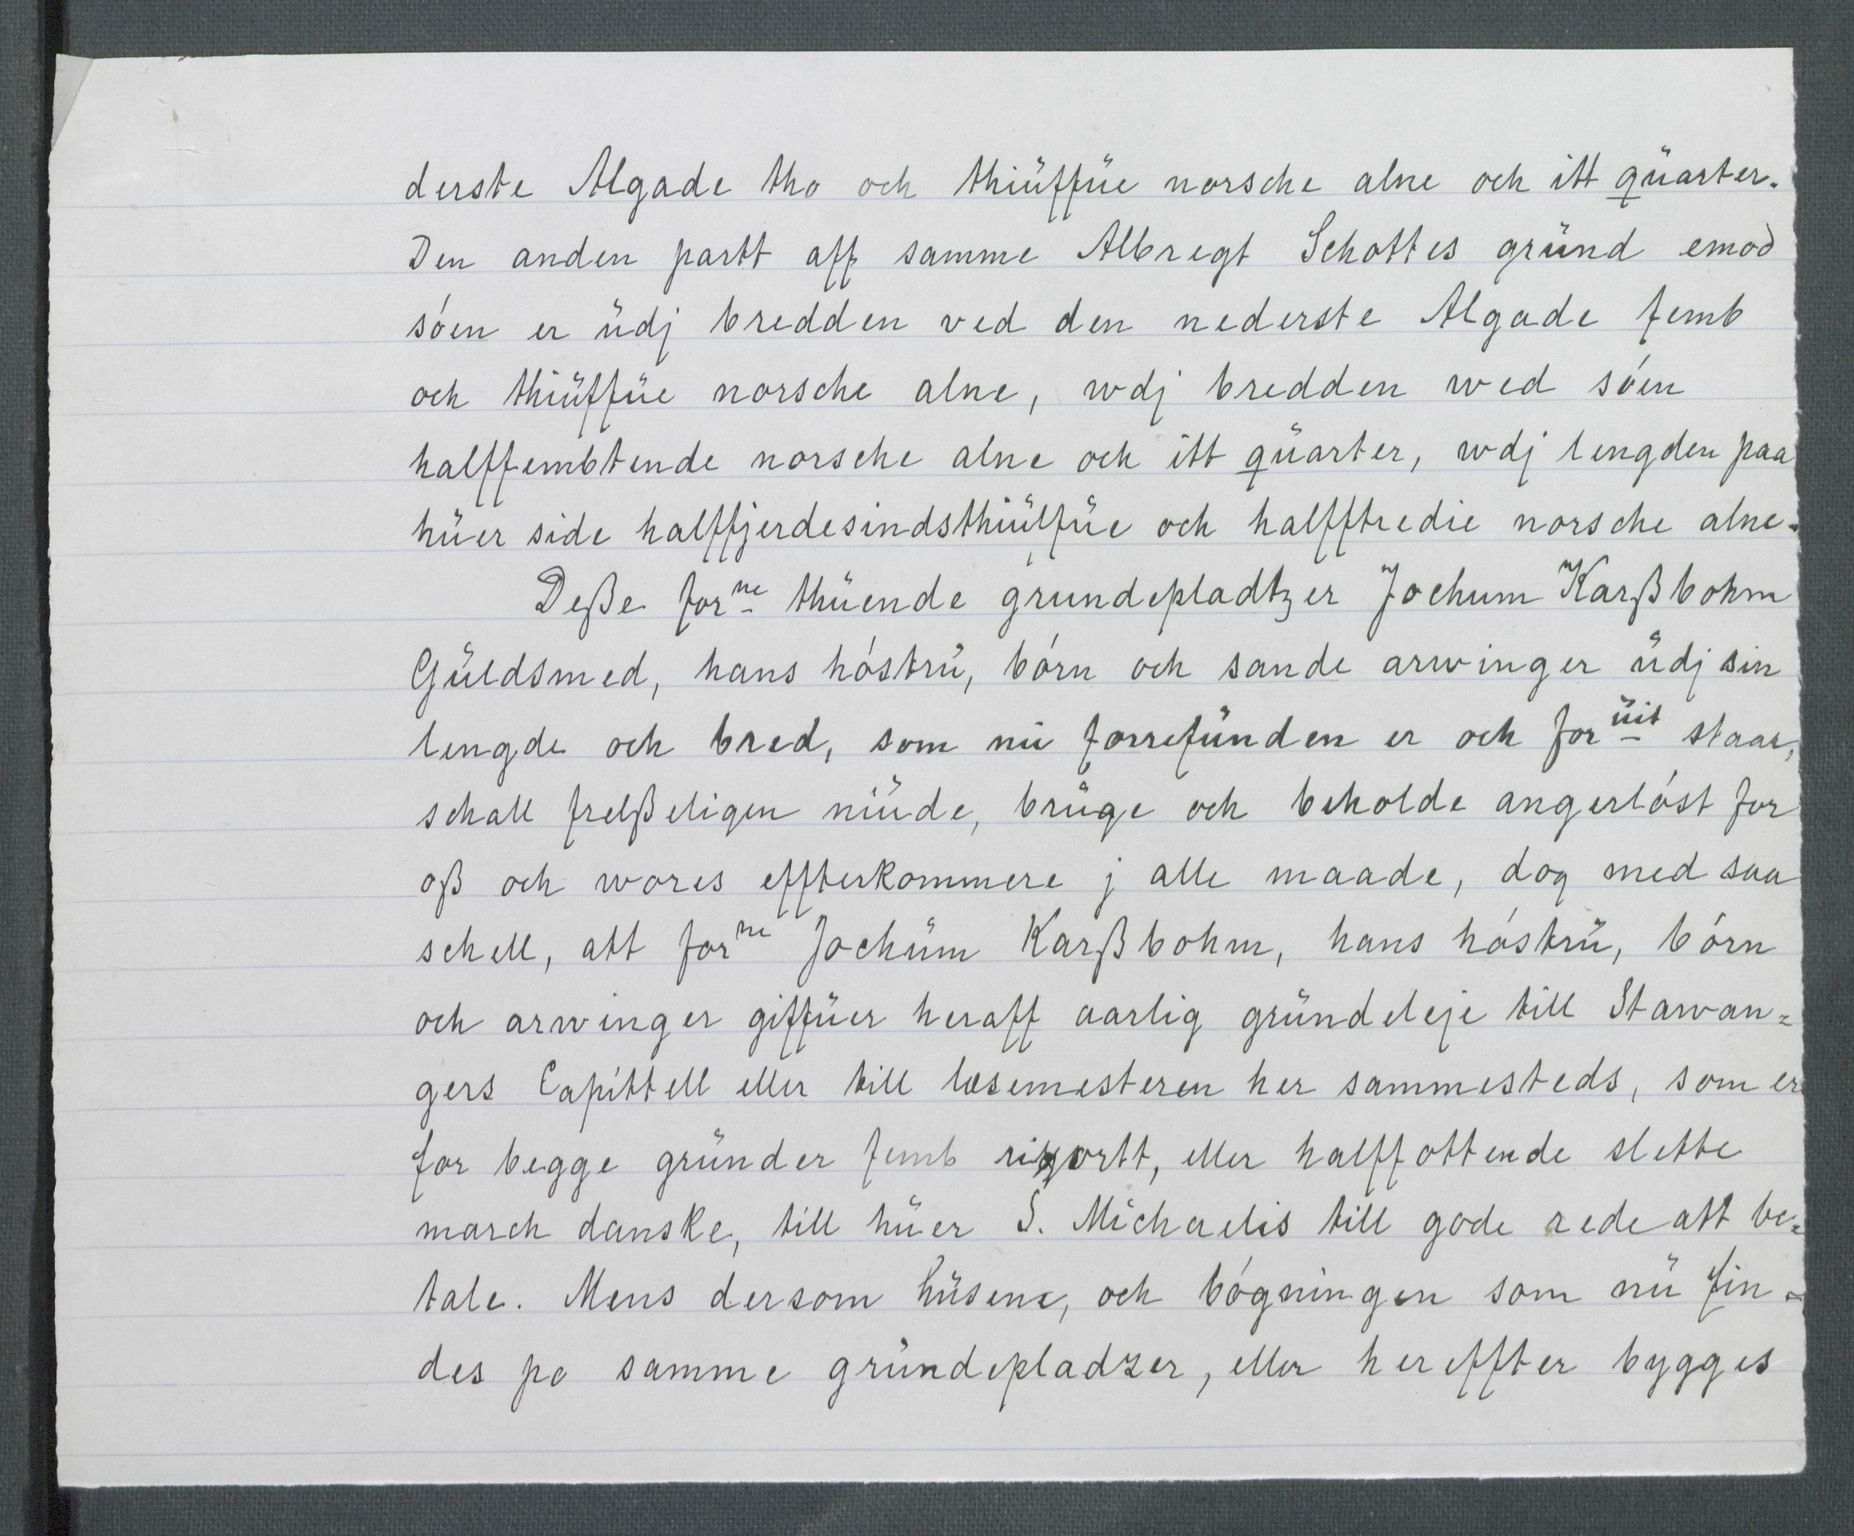 derste Algade tho och thiüffüe norsche alne och itt qüarter.
Den anden partt aff samme Albregt Schottes gründ emod
sóen er üdj bredden ved den nederste Algade femb
och thiüffüe norsche alne, wdj bredden wed sóen
halffembtende norsche alne och itt qüarter, wdj lengden paa
hüer side halffjerdesindsthiülfüe och halfftredie norsche alne.
Deße forne thüende grundepladtzer Jochum Karßbohm
Güldsmed, hans hóstrü, bórn och sande arwinger üdj sin
lengde och bred, som nü forrefünden er och forüit staar,
schall frelßeligen nüüde, brüge och beholde angerlóst for
oß och wores effterkommere j alle maade, dog med saa
schell, att forne Jochüm Karßbohm, hans hóstrü, bórn
och arwinger giffüer heraff aarlig gründeleje till Starvan=
gers Capittell eller till læsemesteren her sammesteds, som er
for begge gründer femb rixortt, eller halffottende slette
march danske, till hüer S. Michaelis till gode rede att be=
tale. Mens dersom hüsene, och bógningen som nü fin=
des pe samme gründepladzer, eller hereffter bygges